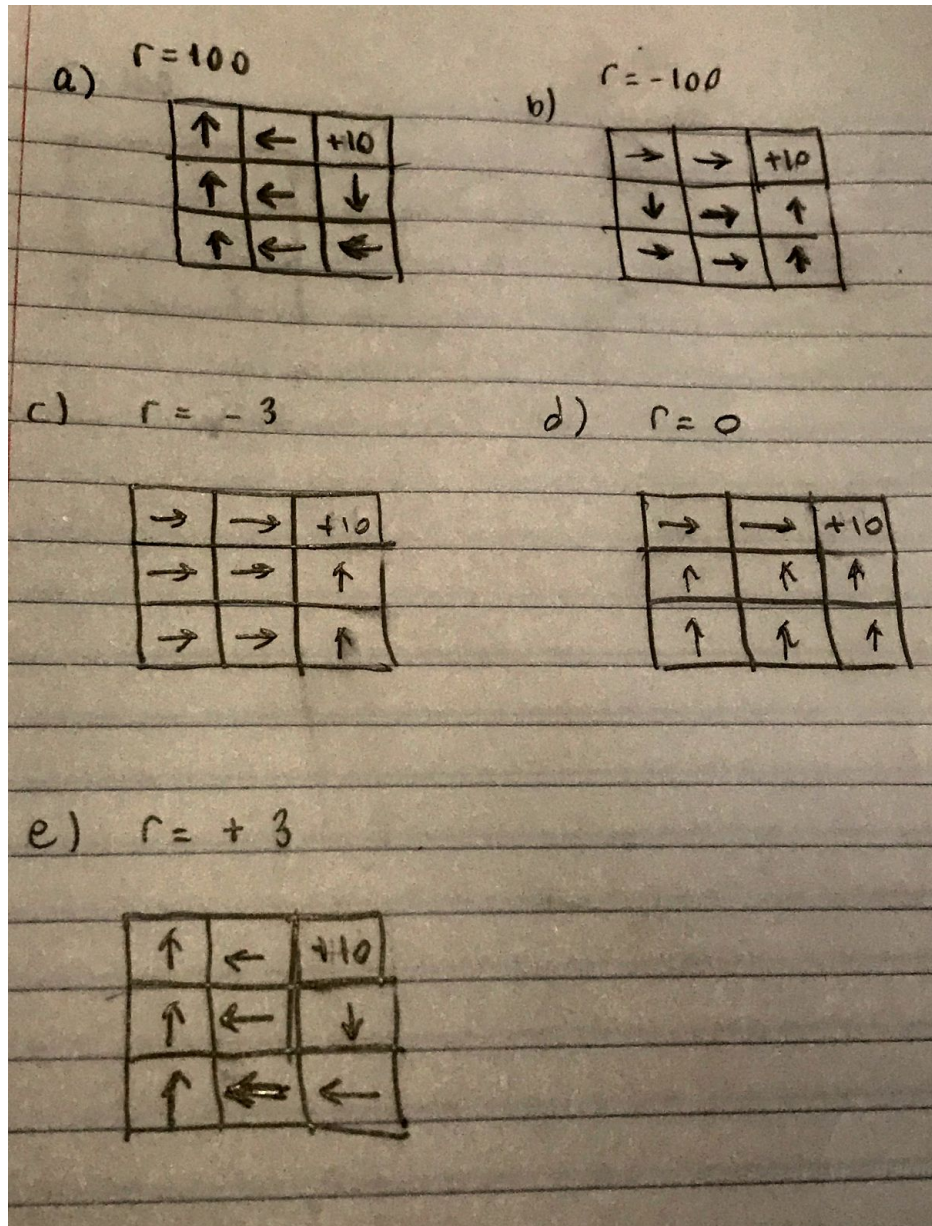 a) r = 100
↑ ← +10
↑ ← ↓
↑ ← ←
b) r = -100
→ → +10
↓ → ↑
→ → ↑
c) r = - 3
→ → +10
→ → ↑
→ → ↑
d) r = 0
→ → +10
↑ ↖ ↑
↑ ↖ ↑
e) r = + 3
↑ ← +10
↑ ← ↓
↑ ← ←